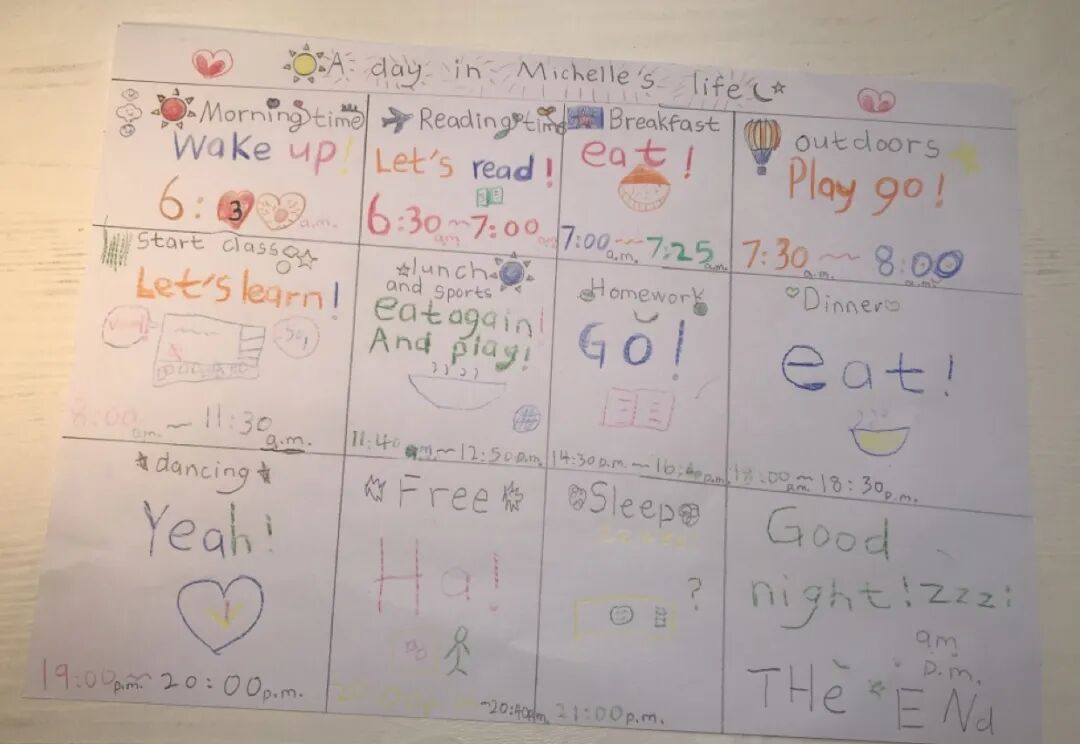 A day in Michelle's life
Morning time
Wake up!
6:3 a.m.
Reading time
Let's read!
6:30 am ~ 7:00 am
Breakfast
eat!
7:00 a.m. ~ 7:25 a.m.
outdoors
Play go!
7:30 a.m. ~ 8:00 a.m.
Start class
Let's learn!
8:00 am. ~ 11:30 a.m.
lunch
and sports
eat again!
And play!
11:40 ~ 12:50p.m.
Homework
GO!
14:30p.m. ~ p.m.
Dinner
eat!
18:00 ~ 18:30p.m.
dancing
Yeah!
19:00p.m. ~ 20:00p.m.
Free
Ha!
~20:40p.m.
Sleep
?
21:00p.m.
Good
night! zzz!
am
p.m.
THe ENd